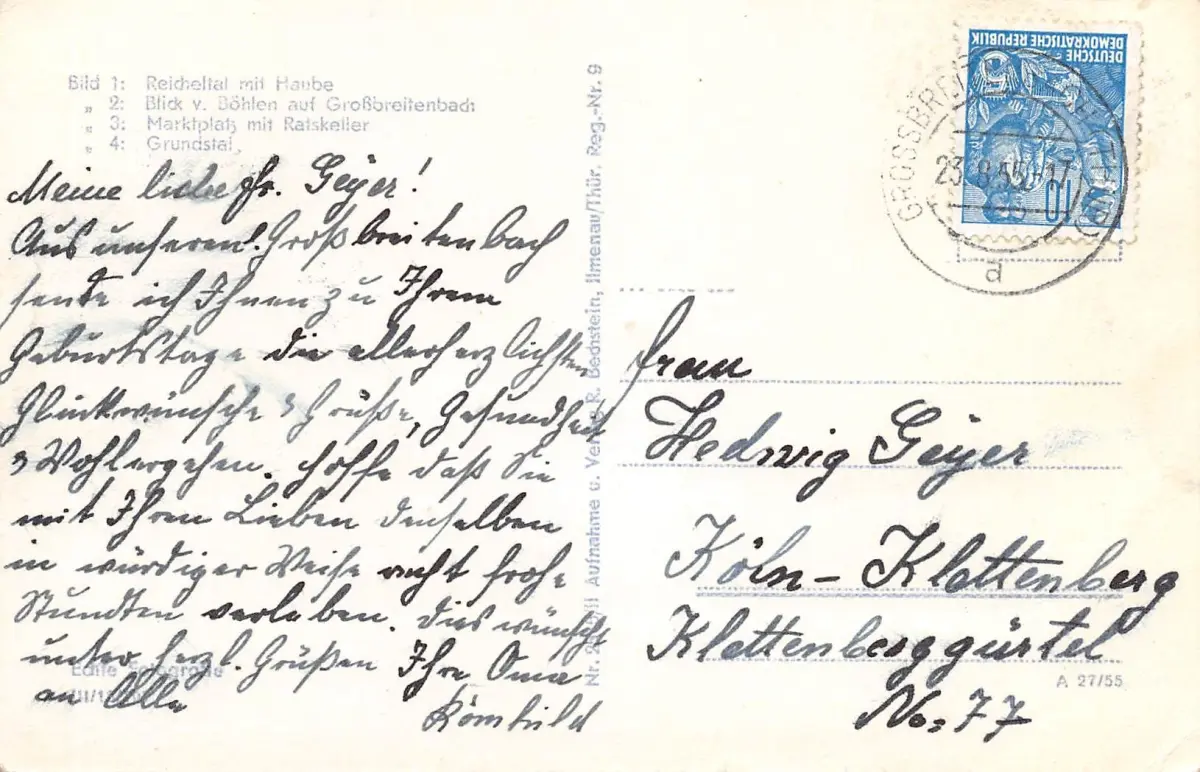 Bild 1: Reicheltal mit Haube
„ 2: Blick v. Böhlen auf Großbreitenbach
„ 3: Marktplatz mit Ratskeller
„ 4: Grundstal
Meine liebe Fr. Geyer!
Aus unserem l. Großbreitenbach
sende ich Ihnen zu Ihrem
Geburtstage die allerherzlichsten
Glückwünsche & Grüße, Gesundheit
& Wohlergehen. Hoffe daß Sie
mit Ihren Lieben denselben
in würdiger Weise recht frohe
Stundten verleben. Dies wünscht
unter herzl. Grüßen Ihre Oma
an Alle Römhild
Echte Fotografie
Aufnahme u. Verlag R. Bechstein, Ilmenau/Thür. Reg.-Nr. 9
DEUTSCHE
DEMOKRATISCHE REPUBLIK
5
10
23.9.55-17
a
Frau
Hedwig Geyer
Köln-Klettenberg
Klettenberggürtel
No: 77
A 27/55